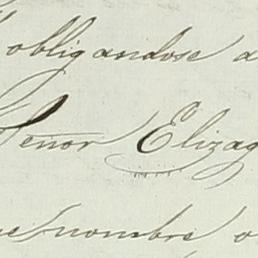 obligandose a
Señor Elizag
nombre o